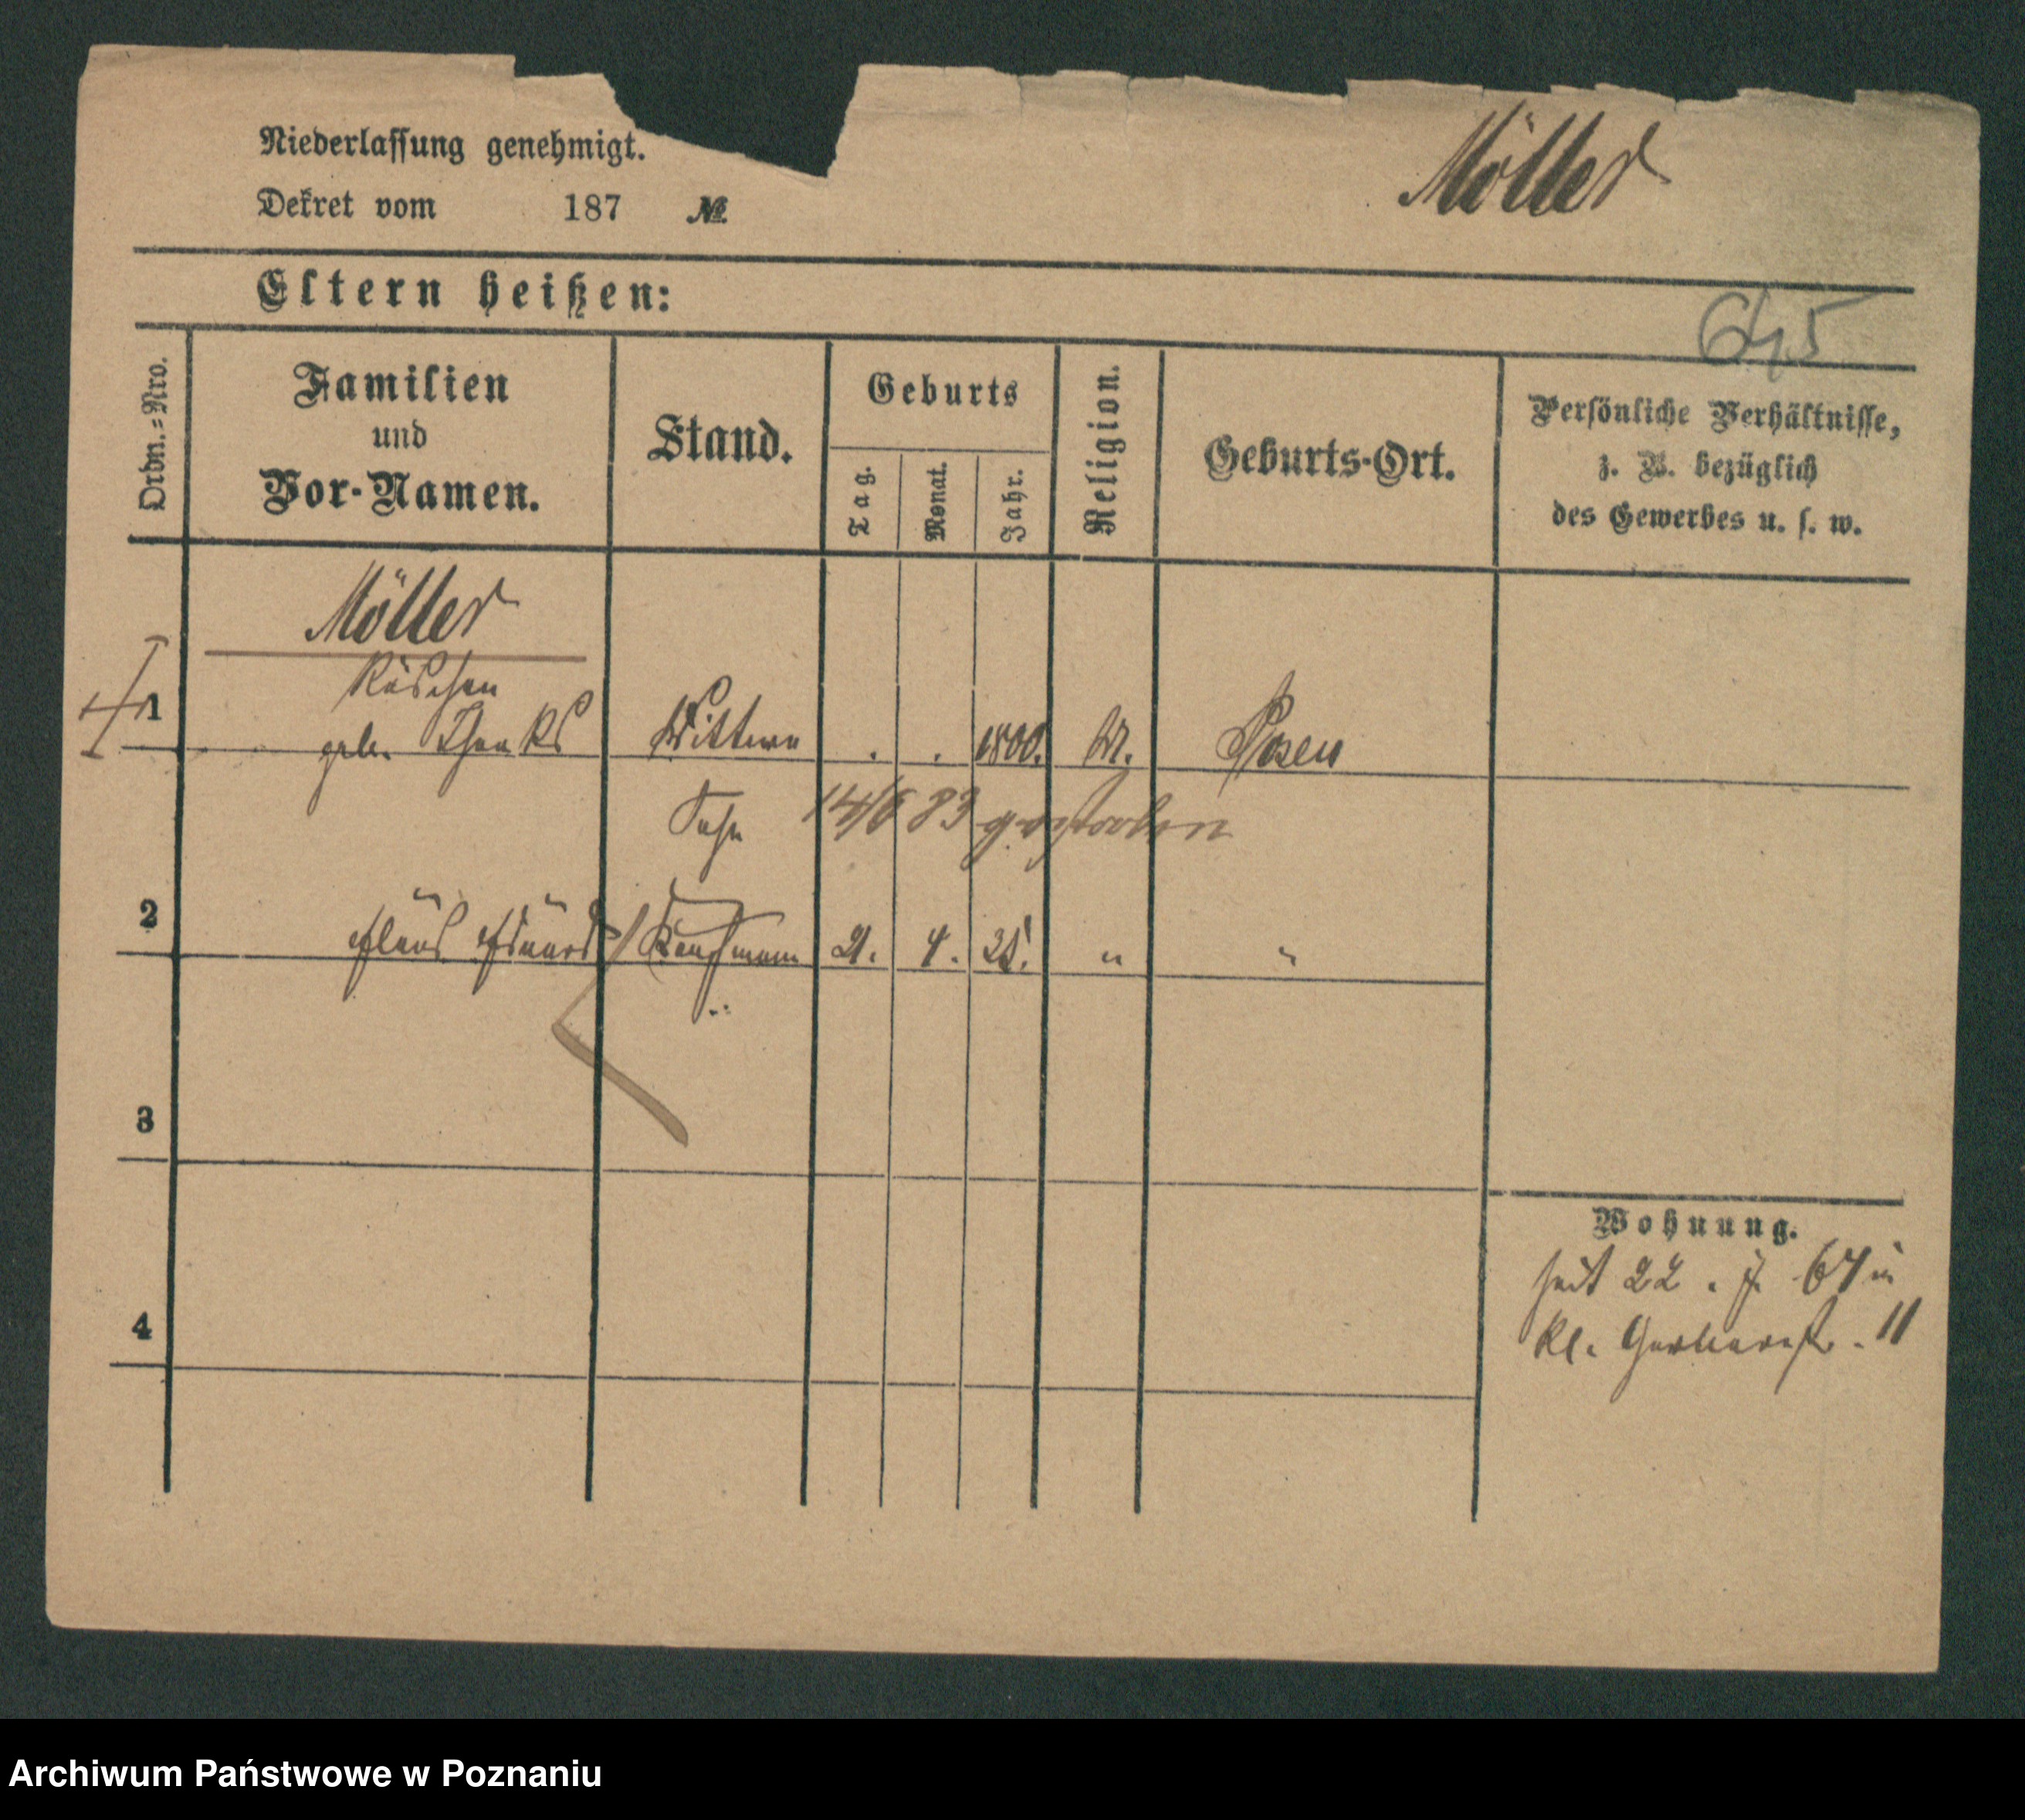 Niederlassung genehmigt.
Dekret vom 187 №
Möller
Eltern heißen:
645
Ordn.-Nro.
Familien
und
Vor-Namen.
Stand.
Geburts
Tag.
Monat.
Jahr.
Religion.
Geburts-Ort.
Persönliche Verhältnisse,
z. B. bezüglich
des Gewerbes u. s. w.
Möller
Röschen
1 geb. Wittwe . . 1800. M. Posen
Sohn 14/6 83 gestorben
2 Eduard Kaufmann 21. 4. 25. " "
3
Wohnung.
seit 22. 7. 67 in
4
kl. Gerberstr. 11
Archiwum Państwowe w Poznaniu